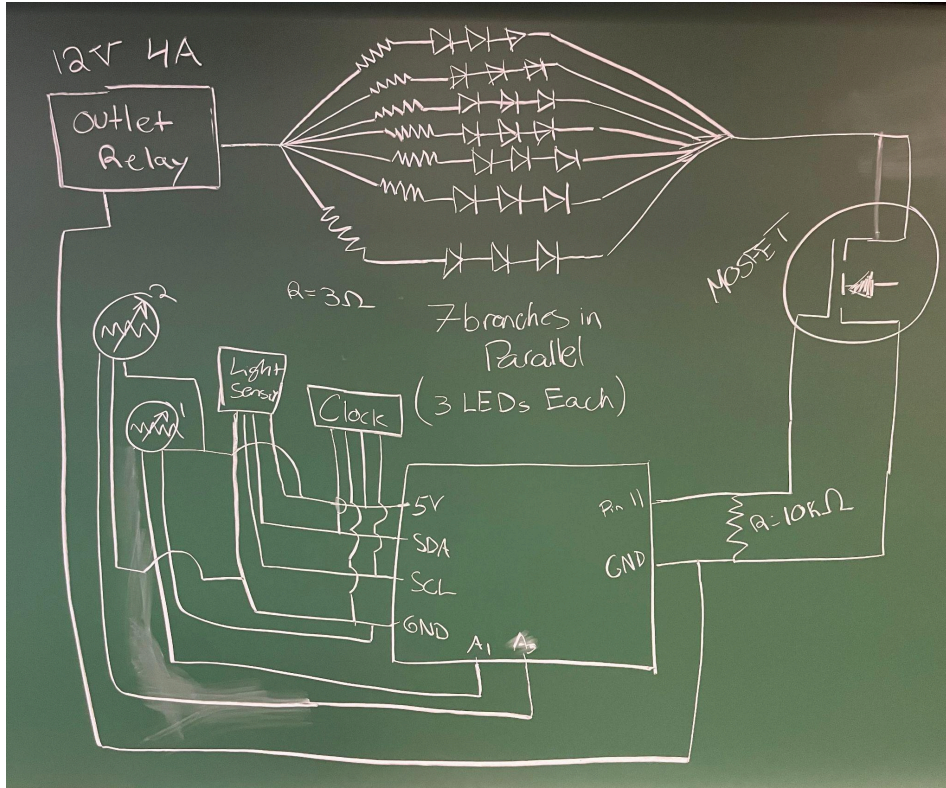 12V 4A
Outlet
Relay
MOSFET
R=3Ω
7 branches in
Parallel
(3 LEDs Each)
2
1
Light
Sensor
Clock
5V
SDA
SCL
GND
A1
Pin 11
GND
R=10KΩ